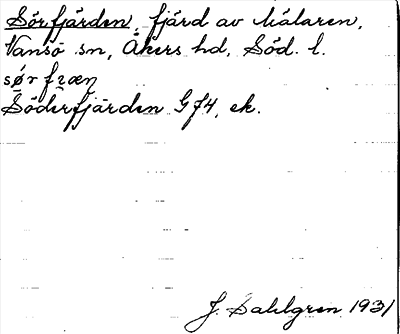 Sörfjärden, fjärd av Mälaren,
Vansö sn, Åkers hd, Söd. l.
Söderfjärden Gf4, ek.
J. Sahlgren 1931